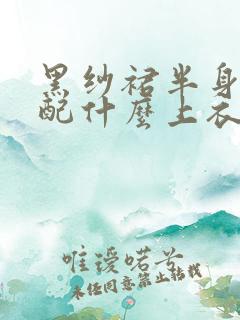 黑纱裙半身
配什麼上衣
唯嫒喏兮
未经同意禁止转载